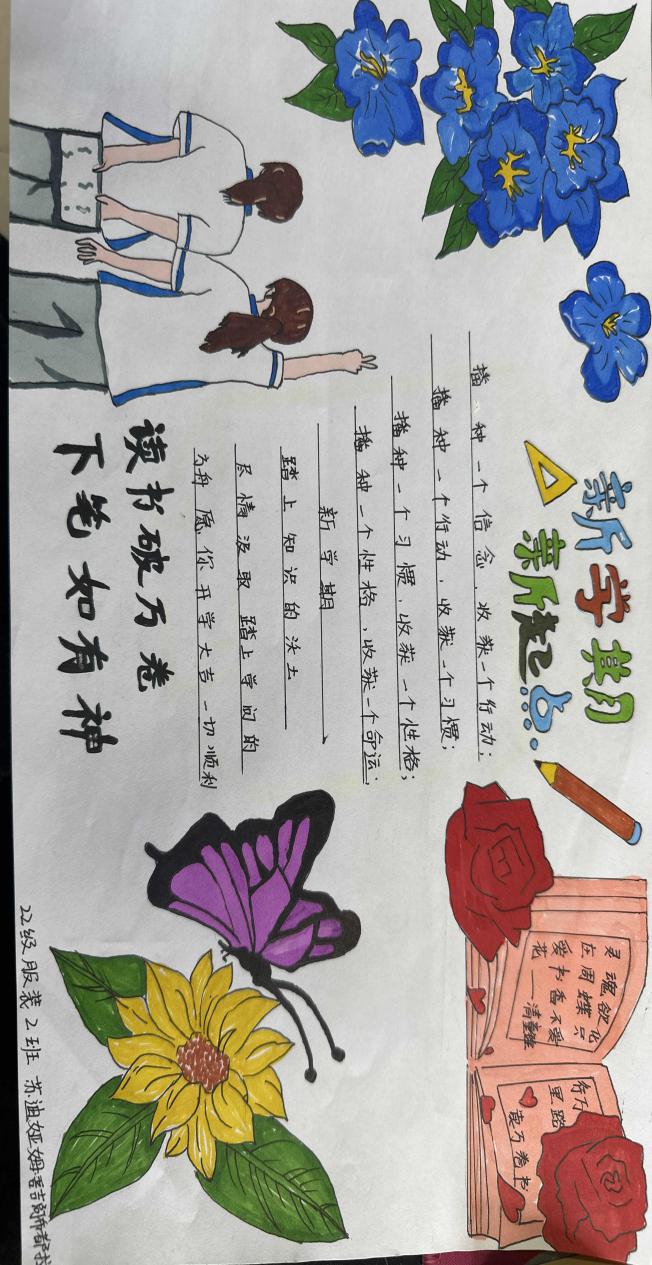 新学期
新起点
播种一个信念，收获一个行动；
播种一个行动，收获一个习惯；
播种一个习惯，收获一个性格；
播种一个性格，收获一个命运；
新学期
踏上知识的沃土
尽情汲取 踏上学问的
方舟 愿你开学大吉 一切顺利
读书破万卷
下笔如有神
灵魂欲化
庄周蝶 只
爱书香不爱
花
行万
里路
读万卷书
22级服装2班 苏迪娅姆